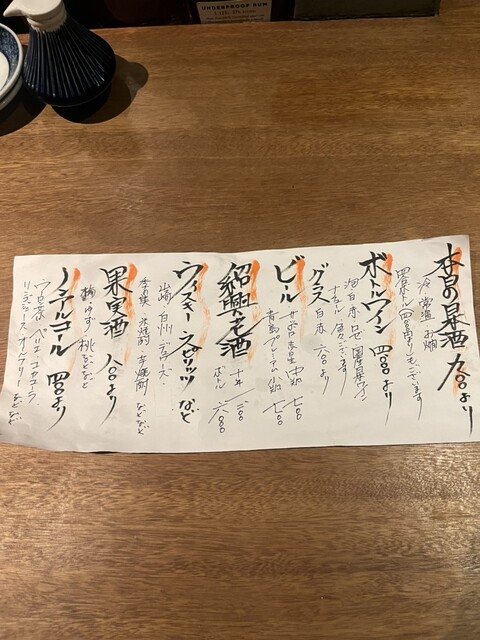 UNDERPROOF RUM
本日の泉酒 九〇〇より
冷 常温 お燗
四合ボトル 四〇〇〇円よりもございます
ボトルワイン 四〇〇〇より
泡 白 赤 ロゼ 国産
ナチュール 色々ございます
グラス 白 赤 六〇〇より
ビール
サッポロ赤星 中瓶 七〇〇
青島プレミアム 小瓶 七〇〇
紹興老酒
十年
ボトル 六八〇〇
ウィスキー スピリッツ など
山崎・白州
芋焼酎 などなど
果実酒 八〇〇より
梅・ゆず 桃などなど
ノンアルコール 四〇〇より
ウーロン茶 ペリエ・コカコーラ
オールフリー などなど